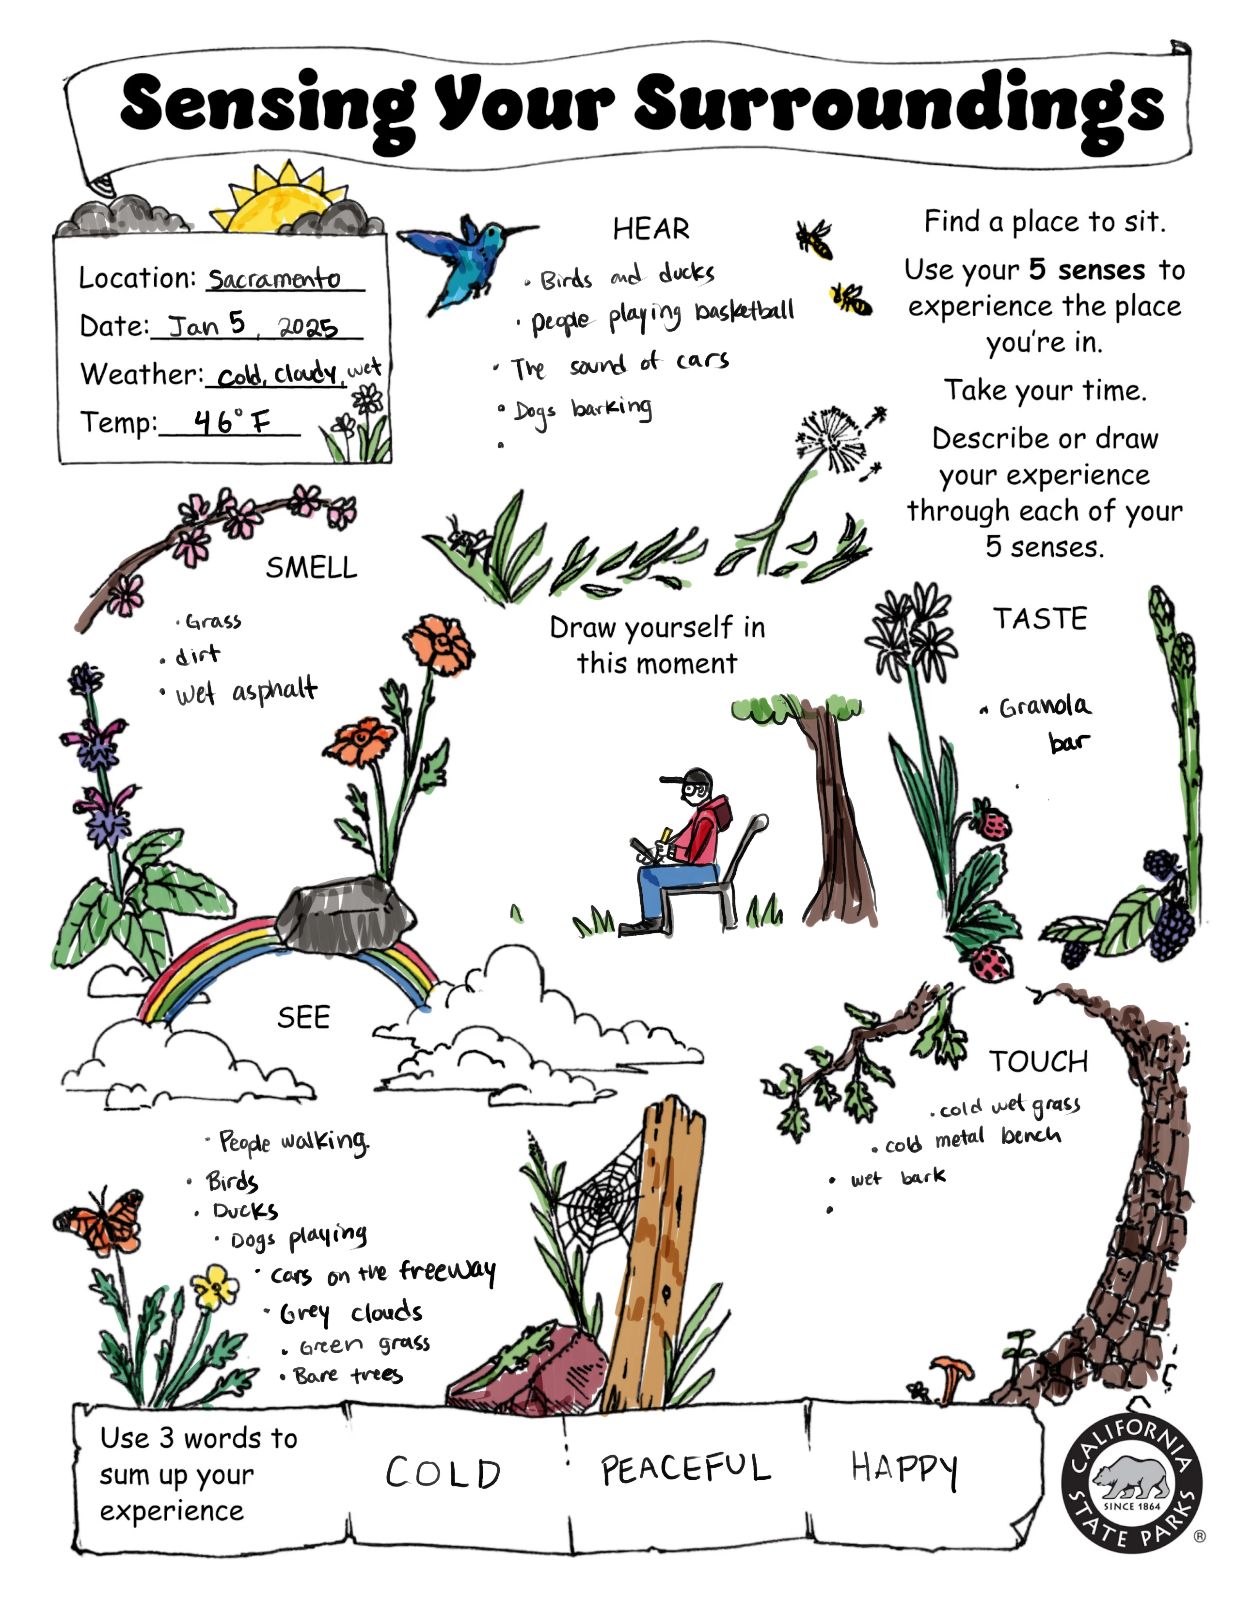 Sensing Your Surroundings
Location: Sacramento
Date: Jan 5, 2025
Weather: cold, cloudy, wet
Temp: 46° F
HEAR
• Birds and ducks
• people playing basketball
• The sound of cars
• Dogs barking
•
Find a place to sit.
Use your 5 senses to
experience the place
you're in.
Take your time.
Describe or draw
your experience
through each of your
5 senses.
SMELL
• Grass
• dirt
• wet asphalt
Draw yourself in
this moment
TASTE
• Granola
bar
SEE
• People walking.
• Birds
• Ducks
• Dogs playing
• cars on the freeway
• Grey clouds
• Green grass
• Bare trees
TOUCH
• cold wet grass
• cold metal bench
• wet bark
•
Use 3 words to
sum up your
experience
COLD
PEACEFUL
HAPPY
CALIFORNIA
SINCE 1864
STATE PARKS
®